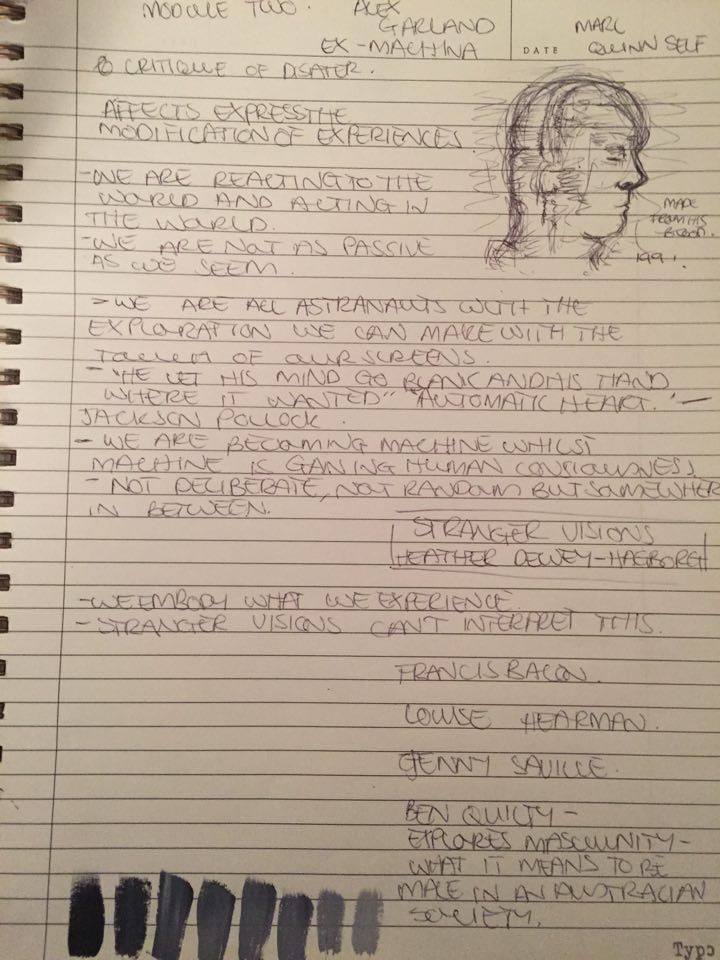 MODULE TWO. ALEX
GARLAND
EX-MACHINA
DATE
MARC
QUINN SELF
CRITIQUE OF DISATER.
AFFECTS EXPRESS THE
MODIFICATION OF EXPERIENCES
-WE ARE REACTING TO THE
WORLD AND ACTING IN
THE WORLD.
-WE ARE NOT AS PASSIVE
AS WE SEEM.
MADE
FROM HIS
BLOOD.
1991.
-WE ARE ALL ASTRANAUTS WITH THE
EXPLORATION WE CAN MAKE WITH THE
TOUCH OF OUR SCREENS.
- "HE LET HIS MIND GO BLANK AND HIS HAND
WHERE IT WANTED" "AUTOMATIC HEART." -
JACKSON POLLOCK.
- WE ARE BECOMING MACHINE WHILST
MACHINE IS GANING HUMAN CONSIOUSNESS
- NOT DELIBERATE, NOT RANDOM BUT SOMEWHER
IN BETWEEN.
STRANGER VISIONS
HEATHER DEWEY-HAEBORGH
-WE EMBODY WHAT WE EXPERIENCE.
- STRANGER VISIONS CAN'T INTERPRET THIS.
FRANCIS BACON.
LOUISE HEARMAN.
JENNY SAVILLE.
BEN QUILTY -
EXPLORES MASCULINITY -
WHAT IT MEANS TO BE
MALE IN AN AUSTRALIAN
SOCIETY.
Typo